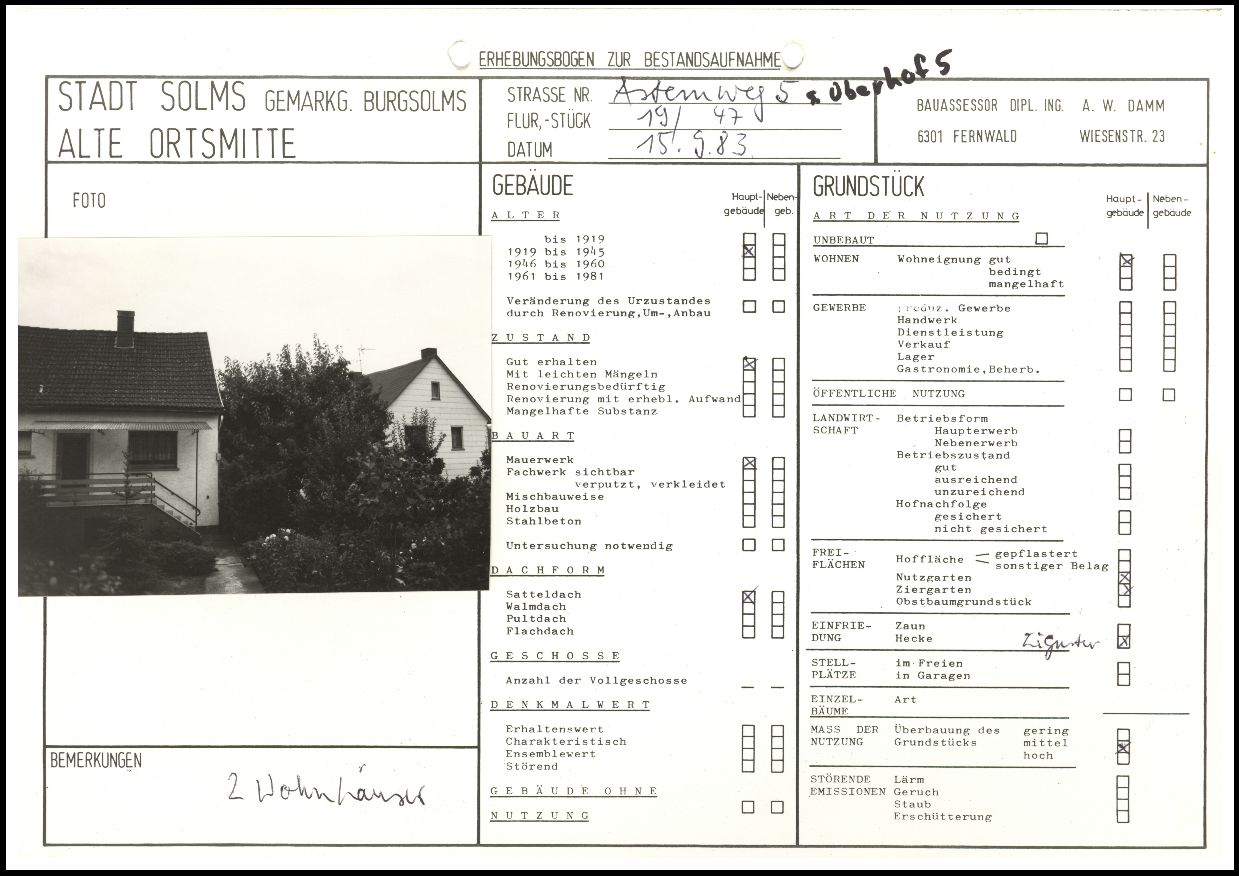 ERHEBUNGSBOGEN ZUR BESTANDSAUFNAHME
STADT SOLMS GEMARKG. BURGSOLMS
ALTE ORTSMITTE
STRASSE NR. Asternweg 5 & Oberhof 5
FLUR,-STÜCK 19/ 47
DATUM 15.9.83
BAUASSESSOR DIPL. ING. A. W. DAMM
6301 FERNWALD WIESENSTR. 23
FOTO
BEMERKUNGEN
2 Wohnhäuser
GEBÄUDE
Haupt- Neben-
gebäude geb.
ALTER
bis 1919
1919 bis 1945
1946 bis 1960
1961 bis 1981
Veränderung des Urzustandes
durch Renovierung,Um-,Anbau
ZUSTAND
Gut erhalten
Mit leichten Mängeln
Renovierungsbedürftig
Renovierung mit erhebl. Aufwand
Mangelhafte Substanz
BAUART
Mauerwerk
Fachwerk sichtbar
verputzt, verkleidet
Mischbauweise
Holzbau
Stahlbeton
Untersuchung notwendig
DACHFORM
Satteldach
Walmdach
Pultdach
Flachdach
GESCHOSSE
Anzahl der Vollgeschosse
DENKMALWERT
Erhaltenswert
Charakteristisch
Ensemblewert
Störend
GEBÄUDE OHNE
NUTZUNG
GRUNDSTÜCK
Haupt- Neben-
gebäude gebäude
ART DER NUTZUNG
UNBEBAUT
WOHNEN Wohneignung gut
bedingt
mangelhaft
GEWERBE Produz. Gewerbe
Handwerk
Dienstleistung
Verkauf
Lager
Gastronomie,Beherb.
ÖFFENTLICHE NUTZUNG
LANDWIRT- Betriebsform
SCHAFT Haupterwerb
Nebenerwerb
Betriebszustand
gut
ausreichend
unzureichend
Hofnachfolge
gesichert
nicht gesichert
FREI- Hoffläche gepflastert
FLÄCHEN sonstiger Belag
Nutzgarten
Ziergarten
Obstbaumgrundstück
EINFRIE- Zaun
DUNG Hecke Liguster
STELL- im Freien
PLÄTZE in Garagen
EINZEL- Art
BÄUME
MASS DER Überbauung des gering
NUTZUNG Grundstücks mittel
hoch
STÖRENDE Lärm
EMISSIONEN Geruch
Staub
Erschütterung